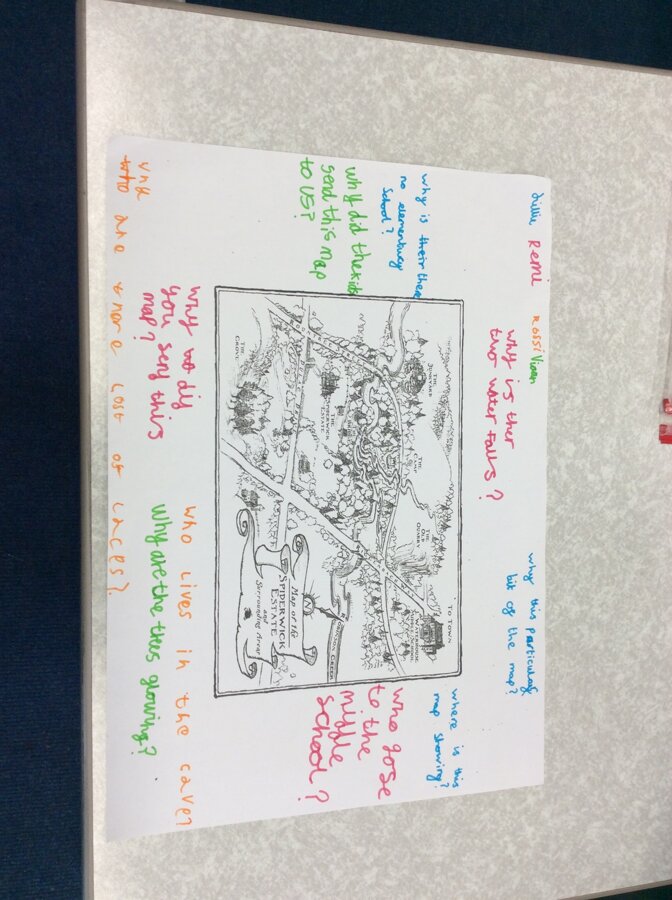 Remi
Vivien
why is ther
two water falls?
why this particular
bit of the map?
why is their there
no elementary
school?
why did the kids
send this map
to us?
where is this
map showing?
who gose
to the
middle
school?
THE JUNKYARD
THE CAMP
THE OLD QUARRY
TO TOWN
THE SPIDERWICK ESTATE
THE GROVE
Map of the
SPIDERWICK
ESTATE
and
Surrounding Areas
why
you
this
map?
who lives in the cave?
Why are the trees growing?
are
lost of